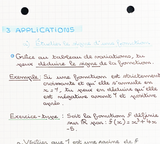 3 APPLICATIONS
Grâce au tableau de variations, tu
peux déduire le signe de la fonction.
Exemple: Si une fonction est strictement
croissante et qu'elle s'annule en
x = 7, tu peux en déduire qu'elle
est négative avant 7 et positive
après.
Exercice-type: Soit la fonction f définie
sur ℝ par: f(x) =
- Vérifier que 1 est une racine de f